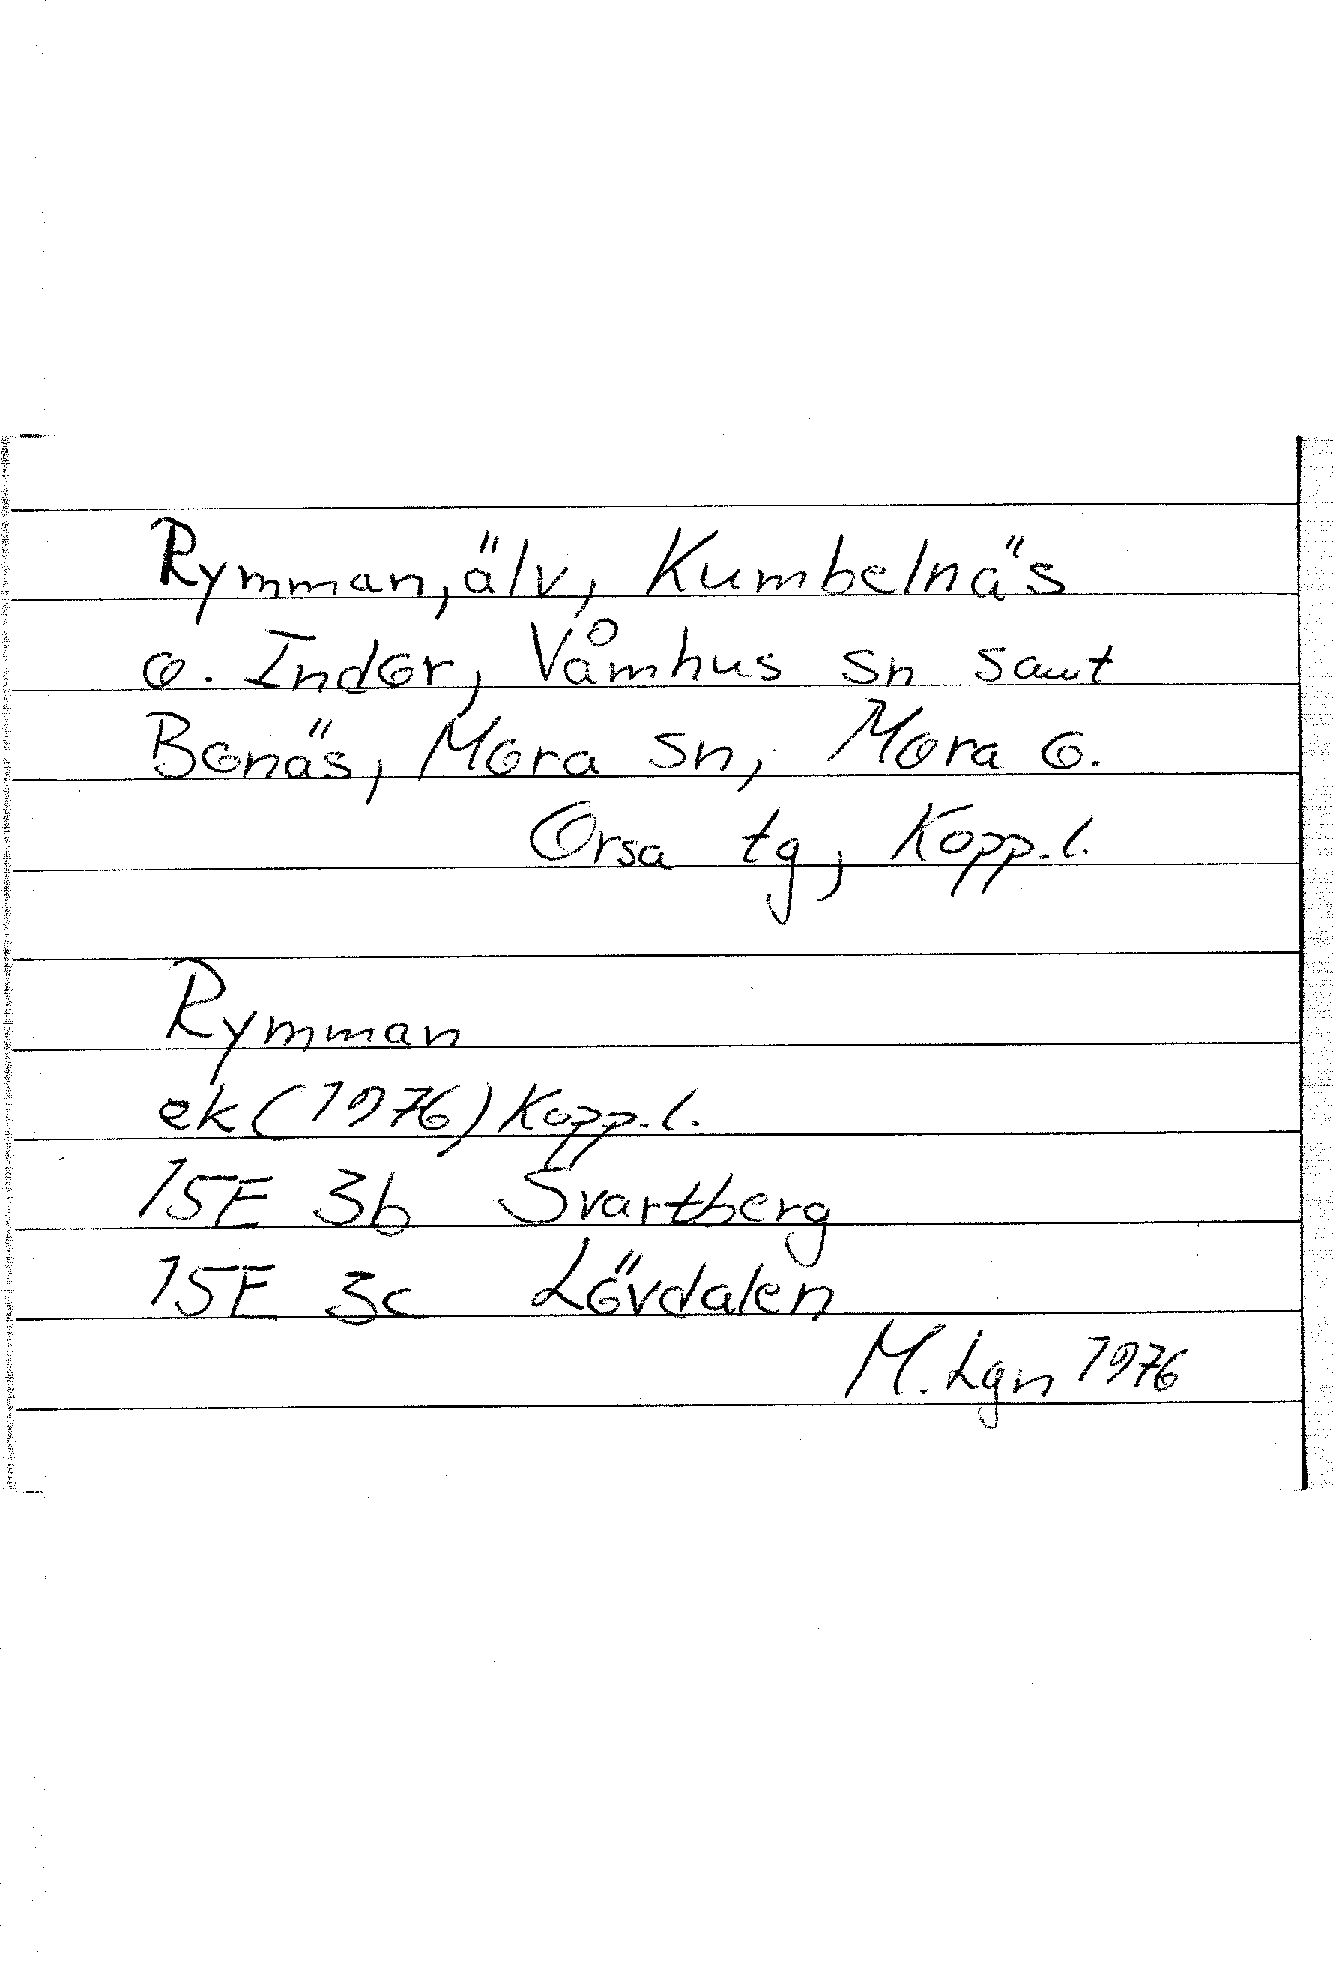 Rymman, älv, Kumbelnäs
o. Indor, Våmhus sn samt
Bonäs, Mora sn, Mora o.
Orsa tg, Kopp. l.
Rymman
ek (1976) Kopp. l.
15E 3b Svartberg
15E 3c Lövdalen
M. Lgn 1976